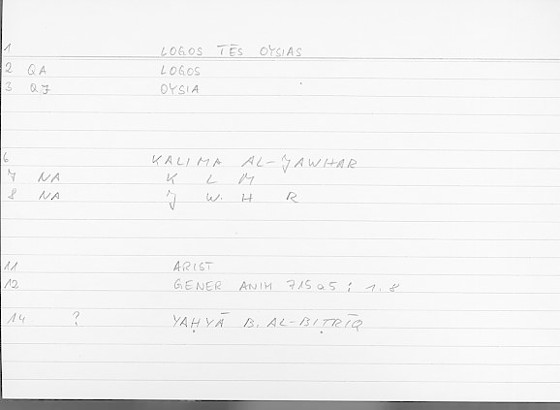 1 LOGOS TĒS OYSIAS
2 QA LOGOS
3 QJ OYSIA
6 KALIMA AL-JAWHAR
7 NA K L M
8 NA J W H R
11 ARIST
12 GENER ANIM 715a5 ; 1.8
14 ? YAḤYĀ B. AL-BIṬRĪQ